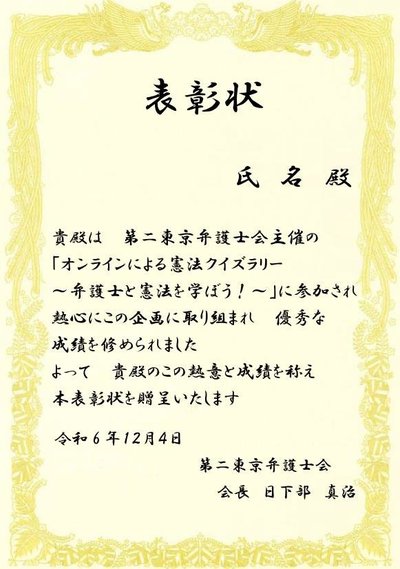 表彰状
氏名殿
貴殿は　第二東京弁護士会主催の
「オンラインによる憲法クイズラリー
～弁護士と憲法を学ぼう！～」に参加され
熱心にこの企画に取り組まれ　優秀な
成績を修められました
よって　貴殿のこの熱意と成績を称え
本表彰状を贈呈いたします
令和6年12月4日
第二東京弁護士会
会長　日下部　真治